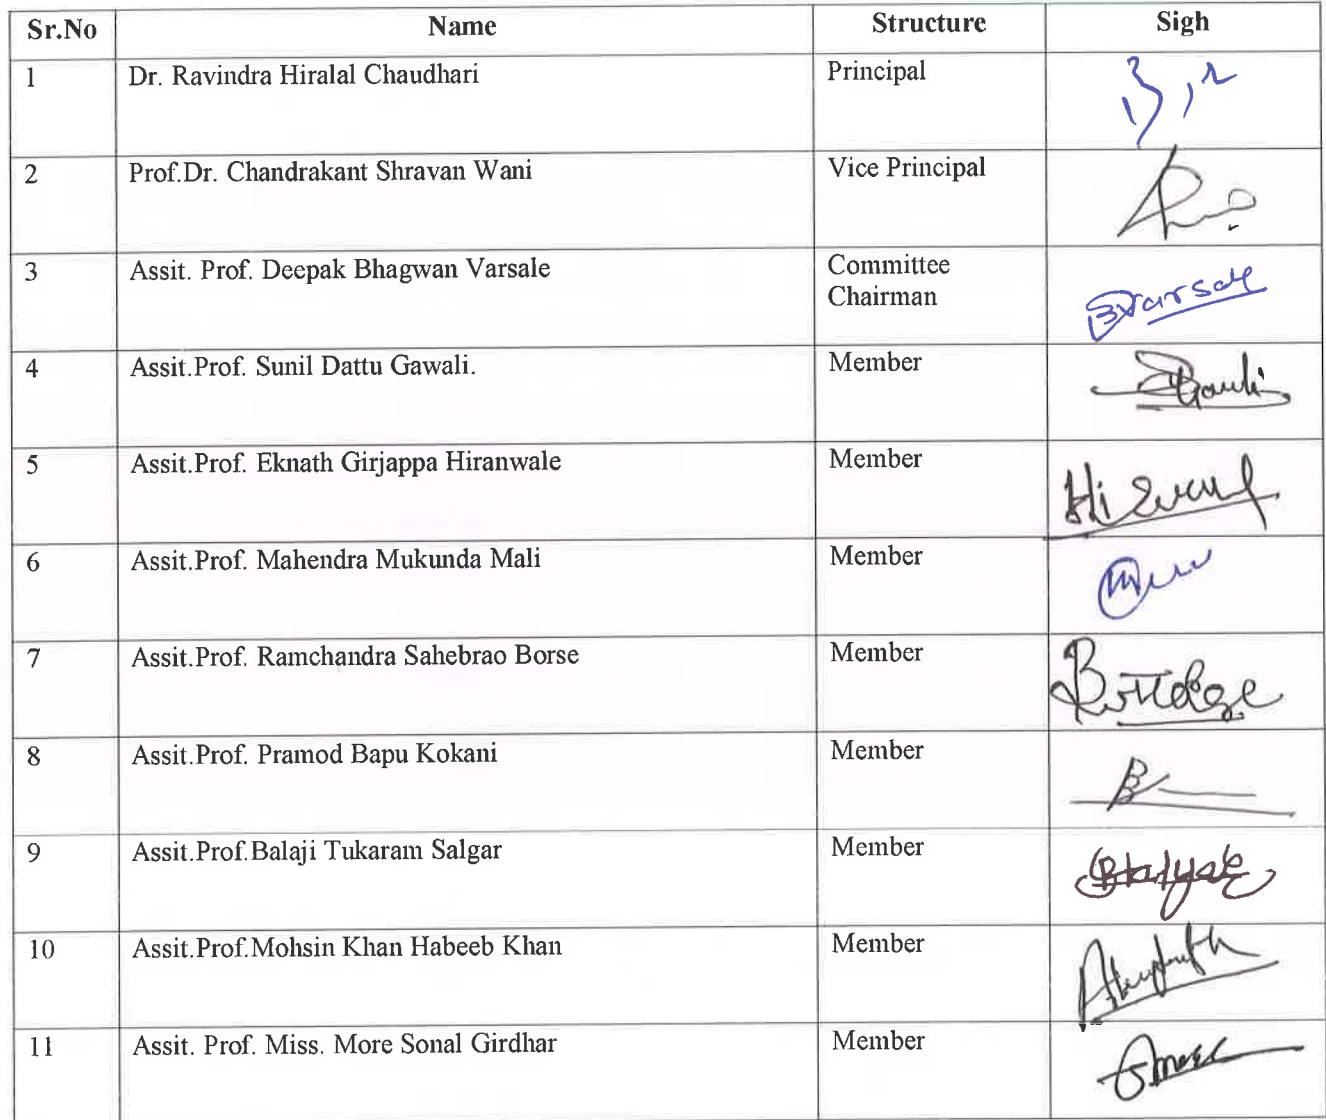 Sr.No Name Structure Sigh
1 Dr. Ravindra Hiralal Chaudhari Principal
2 Prof.Dr. Chandrakant Shravan Wani Vice Principal
3 Assit. Prof. Deepak Bhagwan Varsale Committee
Chairman
4 Assit.Prof. Sunil Dattu Gawali. Member
5 Assit.Prof. Eknath Girjappa Hiranwale Member
6 Assit.Prof. Mahendra Mukunda Mali Member
7 Assit.Prof. Ramchandra Sahebrao Borse Member
8 Assit.Prof. Pramod Bapu Kokani Member
9 Assit.Prof.Balaji Tukaram Salgar Member
10 Assit.Prof.Mohsin Khan Habeeb Khan Member
11 Assit. Prof. Miss. More Sonal Girdhar Member